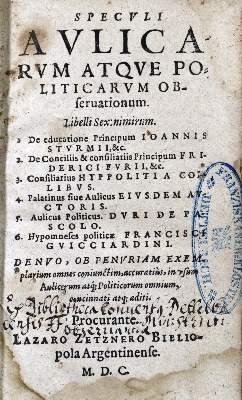 SPECVLI
AVLICA
RVM ATQVE PO-
LITICARVM OB-
seruationum.
Libelli Sex: nimirum.
1 De educatione Principum IOANNIS
STVRMII, &c.
2. De Conciliis & consiliariis Principum FRI-
DERICI FVRII, &c.
3. Consiliarius HYPPOLITI A COL-
LIBVS.
4. Palatinus siue Aulicus EIVSDEM AV-
CTORIS.
5. Aulicus Politicus. DVRI DE PA-
SCOLO.
6 Hypomneses politicæ FRANCISCI
GVICCIARDINI.
DENVO, OB PENVRIAM EXEM-
plarium omnes coniunctim, accuratius, in vsum
Aulicorum atq; Politicorum omnium,
concinnati atq; editi.
Bibliotheca Conventus
Procurante.
LAZARO ZETZNERO BIBLIO-
pola Argentinense.
M. D. C.